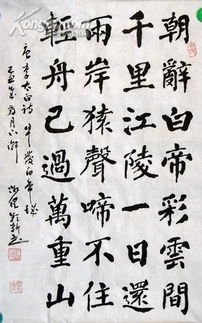 朝辭白帝彩雲間
千里江陵一日還
兩岸猿聲啼不住
輕舟已過萬重山
唐李太白詩 早發白帝城